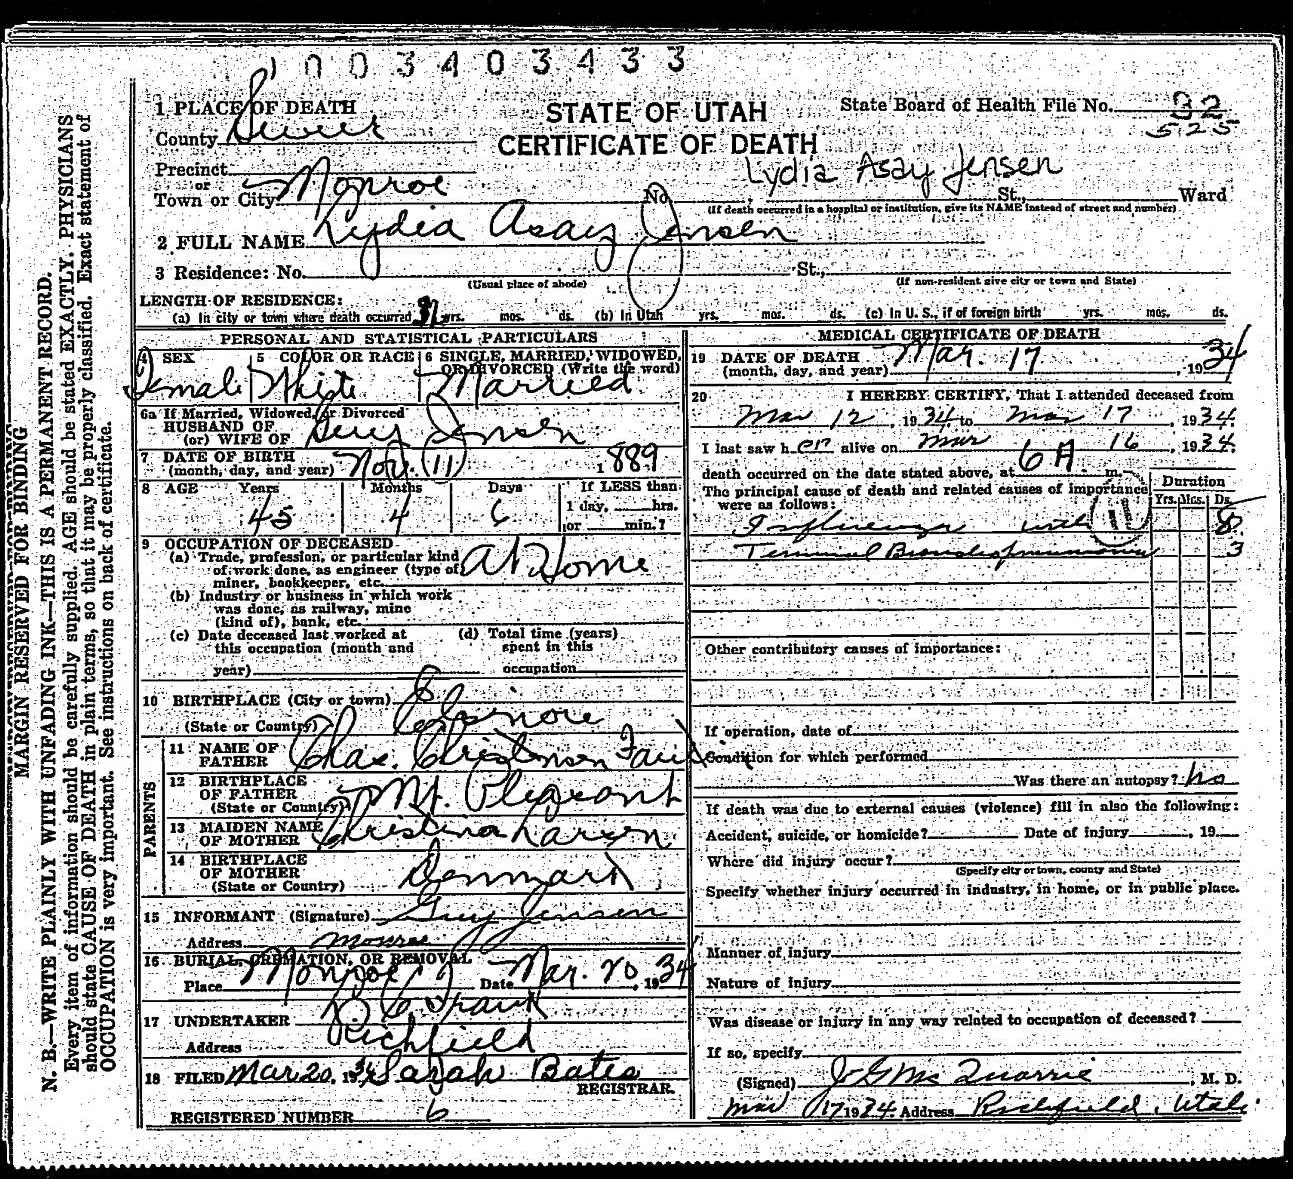 1003403433
1 PLACE OF DEATH
STATE OF UTAH
CERTIFICATE OF DEATH
State Board of Health File No. 32
525
County Sevier
Precinct
or
Town or City Monroe
No. St., Ward
Lydia Asay Jensen
(If death occurred in a hospital or institution, give its NAME instead of street and number)
2 FULL NAME Lydia Asay Jensen
3 Residence: No. St.,
(Usual place of abode) (If non-resident give city or town and State)
LENGTH OF RESIDENCE:
(a) In city or town where death occurred yrs. mos. ds. (b) In Utah yrs. mos. ds. (c) In U. S., if of foreign birth yrs. mos. ds.
PERSONAL AND STATISTICAL PARTICULARS
4 SEX Female
5 COLOR OR RACE White
6 SINGLE, MARRIED, WIDOWED, OR DIVORCED (Write the word) Married
6a If Married, Widowed, or Divorced
HUSBAND OF
(or) WIFE OF Guy Jensen
7 DATE OF BIRTH
(month, day, and year) Nov. 11 1889
8 AGE Years Months Days If LESS than
45 4 6 1 day, hrs.
or min.?
9 OCCUPATION OF DECEASED
(a) Trade, profession, or particular kind
of work done, as engineer (type of
miner, bookkeeper, etc. At Home
(b) Industry or business in which work
was done, as railway, mine
(kind of), bank, etc.
(c) Date deceased last worked at
this occupation (month and
year)
(d) Total time (years)
spent in this
occupation
10 BIRTHPLACE (City or town) Elsinore
(State or Country)
PARENTS
11 NAME OF
FATHER Chas. Christensen
12 BIRTHPLACE
OF FATHER
(State or Country) Mt. Pleasant
13 MAIDEN NAME
OF MOTHER Christina Larsen
14 BIRTHPLACE
OF MOTHER
(State or Country) Denmark
15 INFORMANT (Signature) Guy Jensen
Address Monroe
16 BURIAL, CREMATION, OR REMOVAL
Place Monroe Date Mar. 20, 1934
17 UNDERTAKER
Address Richfield
18 FILED Mar 20, 1934 Sarah Bates
REGISTRAR
REGISTERED NUMBER 6
MEDICAL CERTIFICATE OF DEATH
19 DATE OF DEATH
(month, day, and year) Mar. 17, 1934
20 I HEREBY CERTIFY, That I attended deceased from
Mar 12, 1934 to Mar 17, 1934.
I last saw her alive on Mar 16, 1934.
death occurred on the date stated above, at 6 A m.
The principal cause of death and related causes of importance
were as follows:
Duration
Yrs. Mos. Ds.
11
Influenza with 8
Terminal Bronchopneumonia 3
Other contributory causes of importance:
If operation, date of
Condition for which performed
Was there an autopsy? no
If death was due to external causes (violence) fill in also the following:
Accident, suicide, or homicide? Date of injury , 19
Where did injury occur?
(Specify city or town, county and State)
Specify whether injury occurred in industry, in home, or in public place.
Manner of injury
Nature of injury
Was disease or injury in any way related to occupation of deceased?
If so, specify
(Signed) J G McQuarrie, M. D.
Mar 17 1934 Address Richfield, Utah.
MARGIN RESERVED FOR BINDING
N. B.—WRITE PLAINLY WITH UNFADING INK—THIS IS A PERMANENT RECORD.
Every item of information should be carefully supplied. AGE should be stated EXACTLY. PHYSICIANS
should state CAUSE OF DEATH in plain terms, so that it may be properly classified. Exact statement of
OCCUPATION is very important. See instructions on back of certificate.